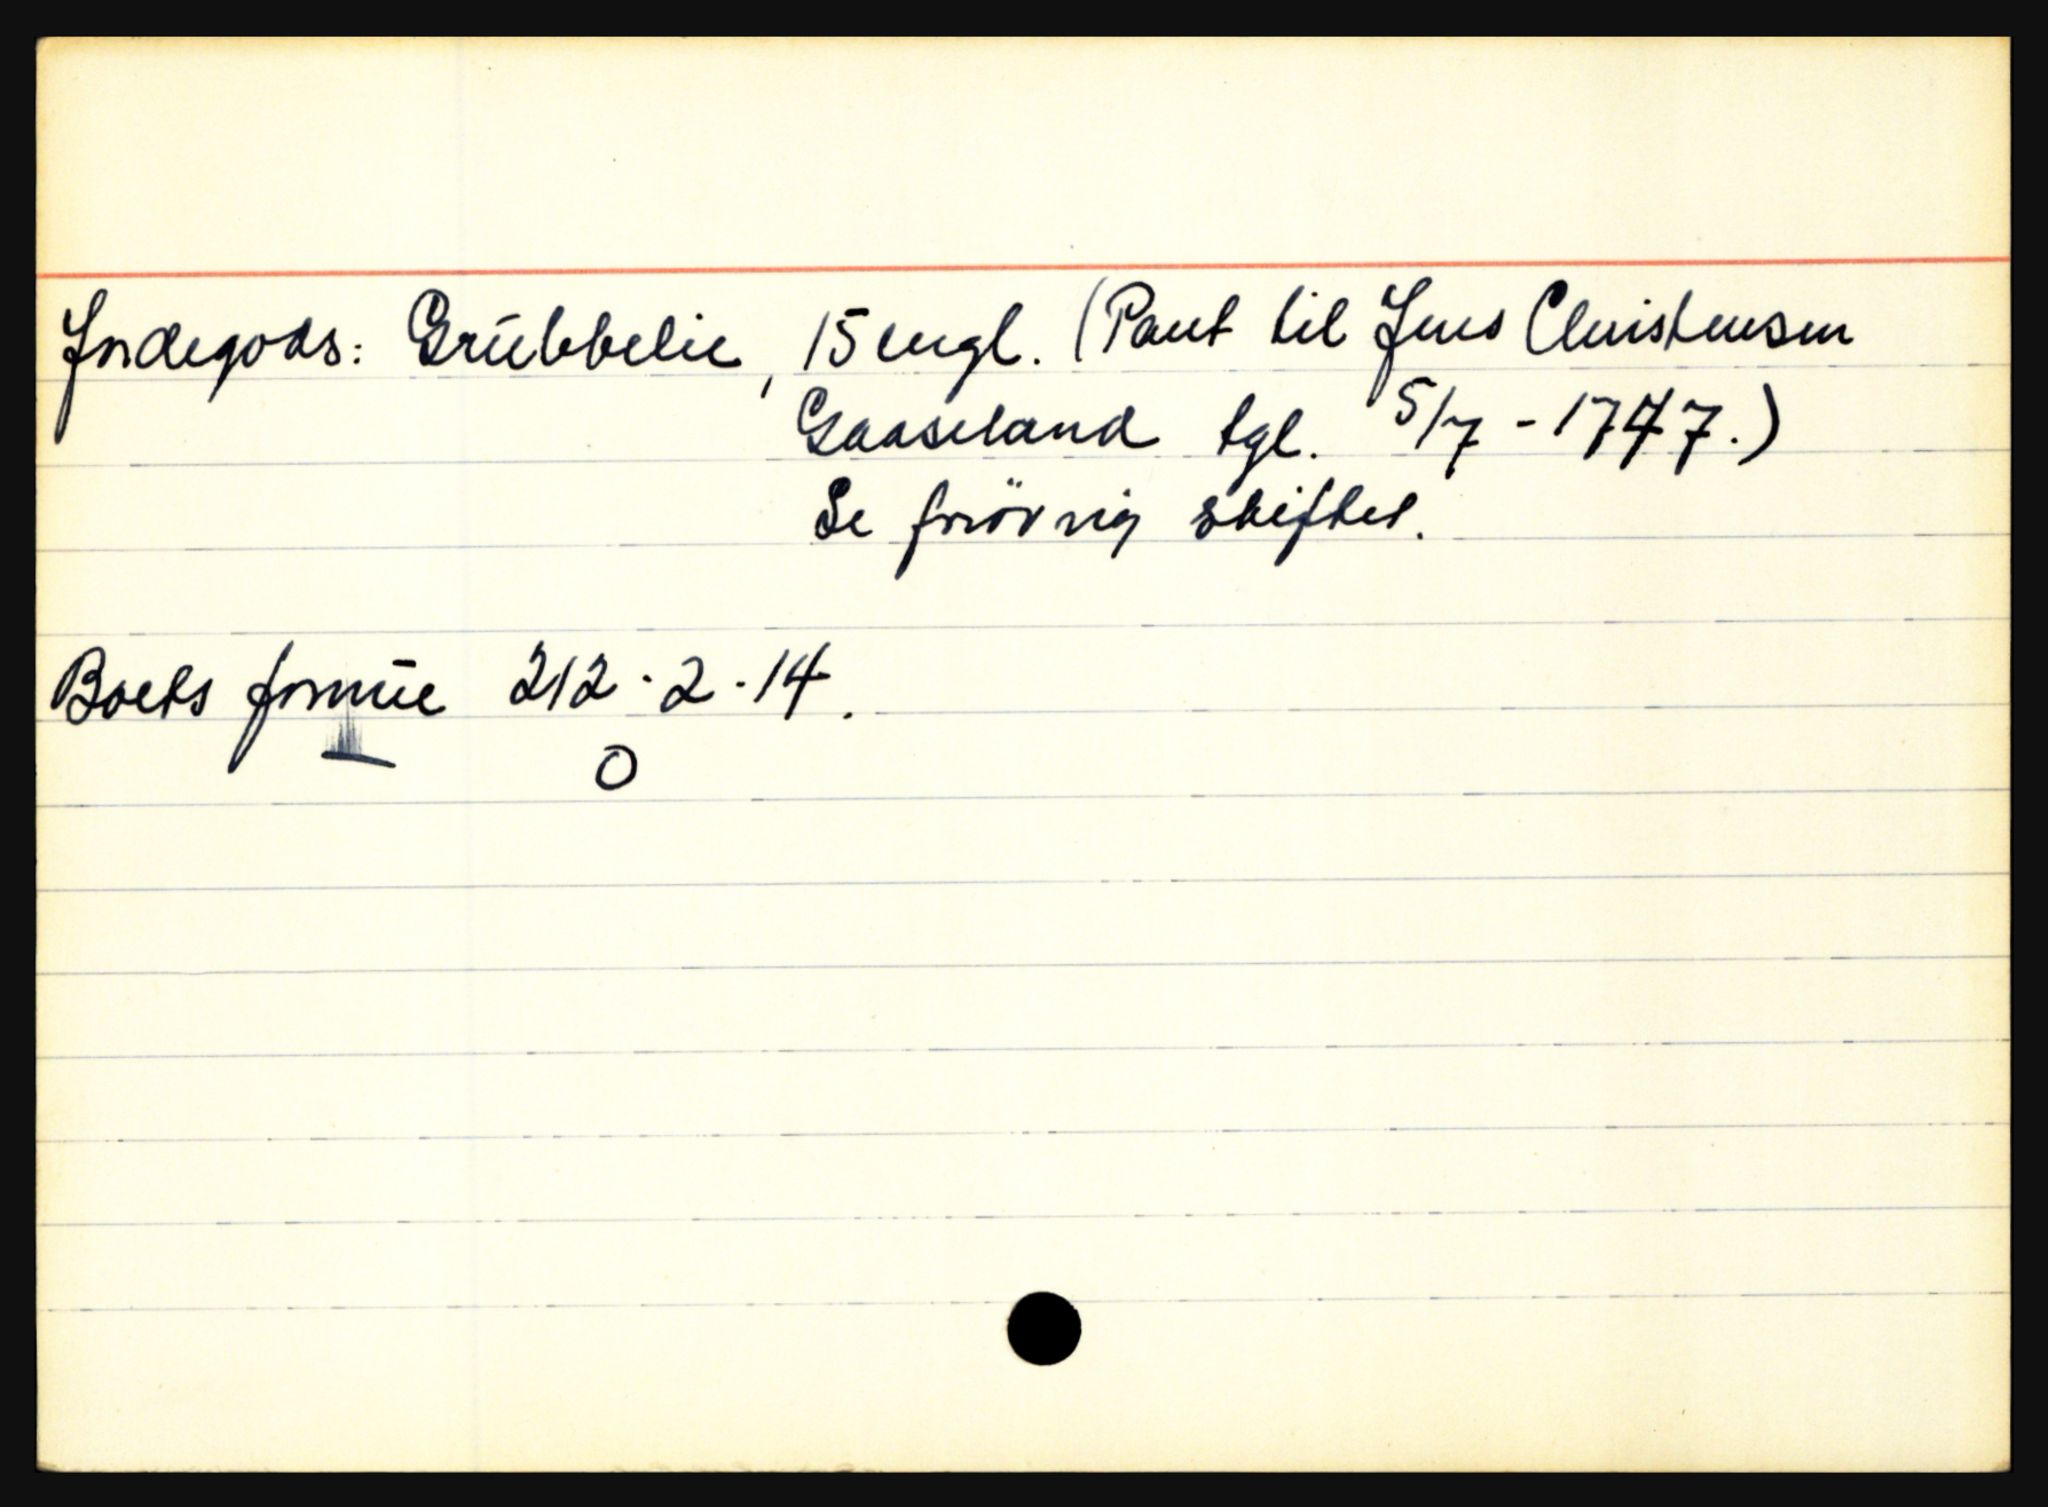 Jordegods: Grubbelie, 15 engl. (Pant til Jens Christensen
Gaaseland tgl. 5/7 - 1747.)
Se forövrig skiftet.
Boets formue 212 - 2 - 14.
0